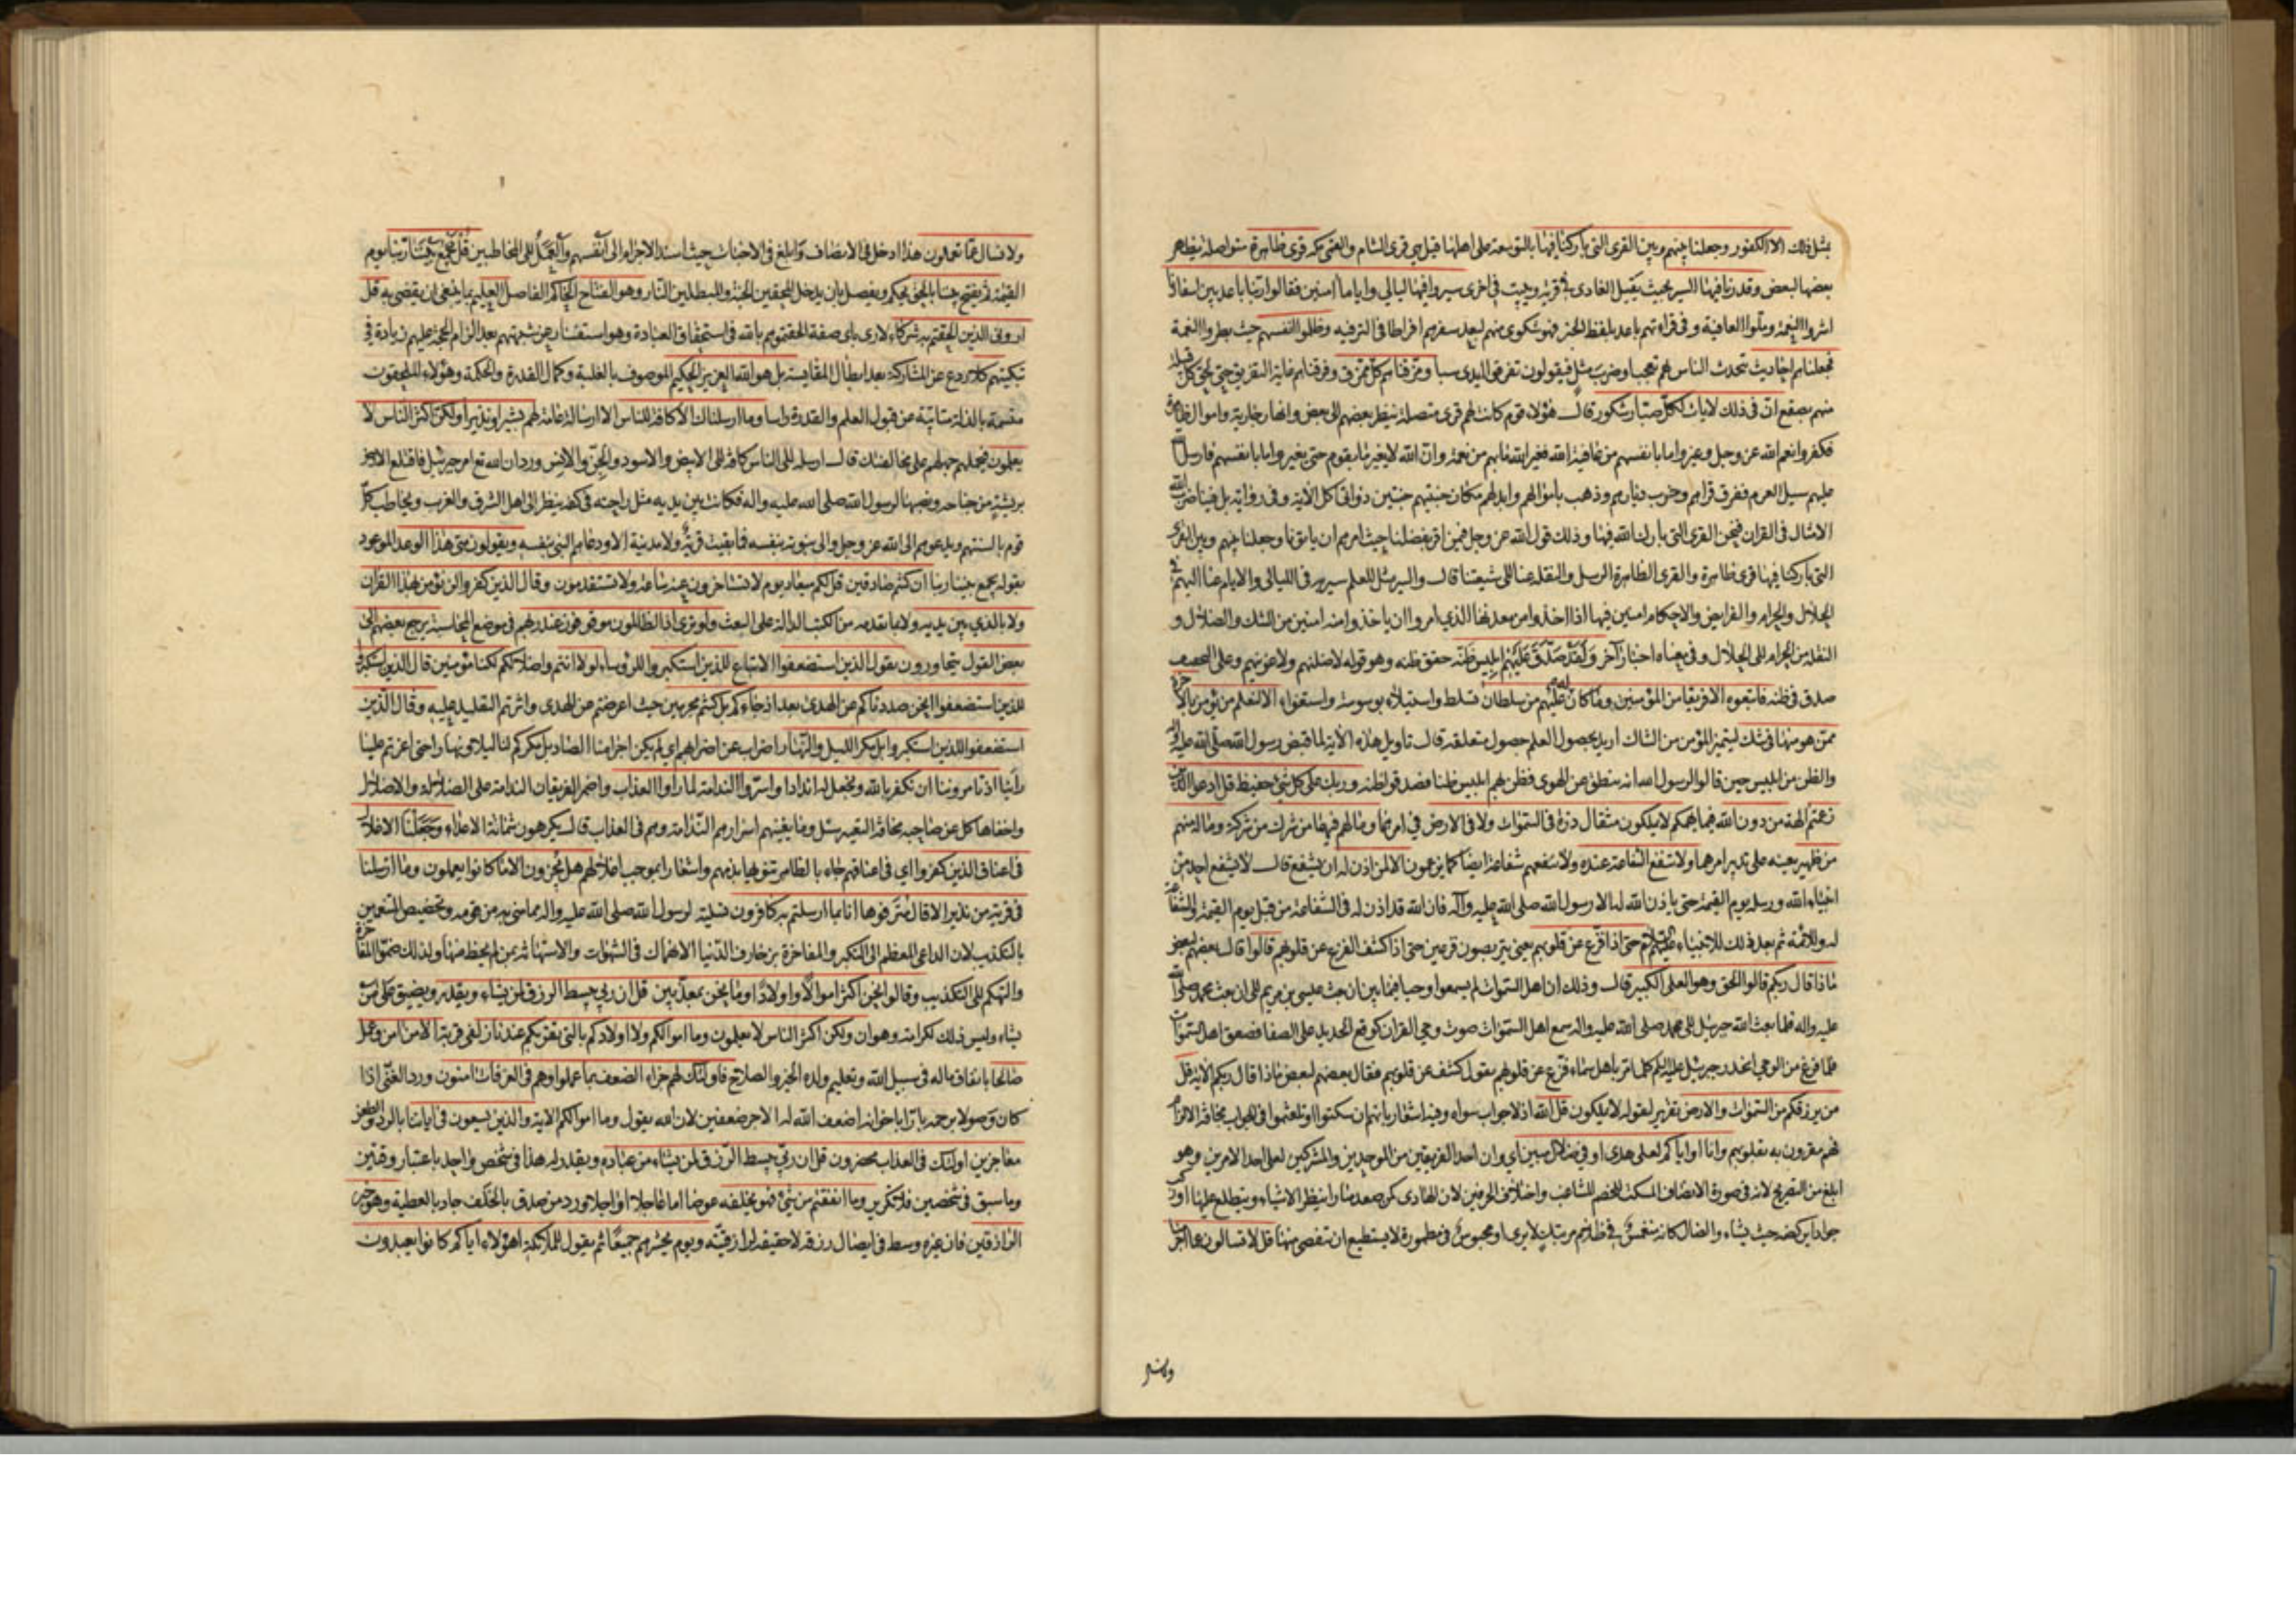 بمثل ذلك الا الكفور وجعلنا بينهم وبين القرى التي باركنا فيها بالتوسعة على اهلها قيل هي قرى الشام والمعنى مكة قرى ظاهرة متواصلة يظاهر
بعضها لبعض وقدرنا فيها السير بحيث يقيل الغادى في قرية ويبيت في اخرى سيروا فيها ليالي واياما آمنين فقالوا ربنا باعد بين اسفارنا
اشروا النعمة وملوا العافية وفي قراءتهم باعد بلفظ الخبر فهو شكوى منهم لبعد سفرهم افراطا في الترفيه وظلموا انفسهم حيث بطروا النعمة
فجعلناهم احاديث تتحدث الناس بهم تعجبا وضرب مثل فيقولون تفرقوا ايدى سبا ومزقناهم كل ممزق وفرقناهم غاية التفريق حتى لحق كل قبيلة
منهم بصقع ان في ذلك لايات لكل صبار شكور قال هؤلاء قوم كانت لهم قرى متصلة ينظر بعضهم الى بعض وانهار جارية واموال ظاهرة
فكفروا نعم الله عز وجل وغيروا ما بانفسهم من عافية الله فغير الله ما بهم من نعمة وان الله لا يغير ما بقوم حتى يغيروا ما بانفسهم فارسل
عليهم سيل العرم ففرق قراهم وخرب ديارهم وذهب باموالهم وابدلهم مكان جنتيهم جنتين ذواتي اكل الآية وفي رواية بل فينا ضرب الله
الامثال في القران فنحن القرى التي بارك الله فيها وذلك قول الله عز وجل فيمن اقر بفضلنا حيث امرهم ان ياتونا وجعلنا بينهم وبين القرى
التي باركنا فيها قرى ظاهرة والقرى الظاهرة الرسل والنقلة عنا الى شيعتنا قال والسير مثل للعلم سير به في الليالي والايام عنا اليهم في
الحلال والحرام والفرايض والاحكام امنين فيها اذا اخذوا من معدنها الذي امروا ان ياخذوا منه امنين من الشك والضلال و
النقلة من الحرام الى الحلال وفي معناه اخبار آخر ولقد صدق عليهم ابليس ظنه حقق ظنه وهو قوله لاضلنهم ولاغوينهم وعلى التخفيف
صدق في ظنه فاتبعوه الا فريقا من المؤمنين وما كان له عليهم من سلطان تسلط واستيلاء بوسوسة واستغواء الا لنعلم من يؤمن بالاخرة
ممن هو منها في شك ليتميز المؤمن من الشاك اريد بحصول العلم حصول متعلقه قال تاويل هذه الآية لما قبض رسول الله صلى الله عليه واله
والظن من ابليس حين قالوا لرسول الله انه ينطق عن الهوى فظن بهم ابليس ظنا فصدقوا ظنه وربك على كل شئ حفيظ قل ادعوا الذين
زعمتم آلهة من دون الله فيما يهمكم لا يملكون مثقال ذرة في السموات ولا في الارض في امر ما وما لهم فيهما من شرك من شركة وما له منهم
من ظهير يعينه على تدبير امرهما ولا تنفع الشفاعة عنده ولا تنفعهم شفاعة ايضا كما يزعمون الا لمن اذن له ان يشفع قال لا يشفع احد من
انبياء الله ورسله يوم القيمة حتى ياذن الله له الا رسول الله صلى الله عليه وآله فان الله قد اذن له في الشفاعة من قبل يوم القيمة والشفاعة
له وللائمة ثم بعد ذلك للانبياء عليهم السلام حتى اذا فزع عن قلوبهم يعني يتربصون فزعين حتى اذا كشف الفزع عن قلوبهم قالوا قال بعضهم لبعض
ماذا قال ربكم قالوا الحق وهو العلي الكبير قال وذلك ان اهل السموات لم يسمعوا وحيا فيما بين ان بعث عيسى بن مريم الى ان بعث محمد صلى الله
عليه واله فلما بعث الله جبرئيل الى محمد صلى الله عليه واله سمع اهل السموات صوت وحي القران كوقع الحديد على الصفا فصعق اهل السموات
فلما فرغ من الوحي انحدر جبرئيل عليه السلام كلما مر باهل سماء فزع عن قلوبهم يقول كشف عن قلوبهم فقال بعضهم لبعض ماذا قال ربكم الآية قل
من يرزقكم من السموات والارض تقرير لقوله لا يملكون قل الله اذ لا جواب سواه وفيه اشعار بانهم ان سكتوا او تلعثموا في الجواب مخافة الالزام
فهم مقرون به بقلوبهم وانا او اياكم لعلى هدى او في ضلال مبين اي وان احد الفريقين من الموحدين والمشركين لعلى احد الامرين وهو
ابلغ من التصريح لانه في صورة الانصاف المسكت للخصم المشاغب واختلاف الحرفين لان الهادى كمن صعد منارا ينظر الاشياء ويتطلع عليها او ركب
جوادا يركضه حيث يشاء والضال كانه منغمس في ظلام مرتبك لا يرى او محبوس في مطمورة لا يستطيع ان يتفصى منها قل لا تسالون عما اجرمنا
ولا نسال عما تعملون هذا ادخل في الانصاف وابلغ في الاخبات حيث اسند الاجرام الى انفسهم والعمل الى المخاطبين قل يجمع بيننا ربنا يوم
القيمة ثم يفتح بيننا بالحق يحكم ويفصل بان يدخل المحقين الجنة والمبطلين النار وهو الفتاح الحاكم الفاصل العليم بما ينبغي ان يقضي به قل
اروني الذين الحقتم به شركاء لارى باي صفة الحقتموهم بالله في استحقاق العبادة وهو استفسار عن شبهتهم بعد الزام الحجة عليهم زيادة في
تبكيتهم كلا ردع عن المشاركة بعد ابطال المقايسة بل هو الله العزيز الحكيم الموصوف بالغلبة وكمال القدرة والحكمة وهؤلاء الملحقون
متسمة بالذلة متابية عن قبول العلم والقدرة راسا وما ارسلناك الا كافة للناس الا ارسالة عامة لهم بشيرا ونذيرا ولكن اكثر الناس لا
يعلمون فيحملهم جهلهم على مخالفتك قال ارسله الى الناس كافة الى الابيض والاسود والجن والانس ورد ان الله تع امر جبرئيل فاقتلع الارض
بريشة من جناحه ونصبها لرسول الله صلى الله عليه واله فكانت بين يديه مثل راحته في كفه ينظر الى اهل الشرق والغرب ويخاطب كل
قوم بالسنتهم ويدعوهم الى الله عز وجل والى نبوته بنفسه فما بقيت قرية ولا مدينة الا ودعاهم النبي بنفسه ويقولون متى هذا الوعد الموعود
بقوله يجمع بيننا ربنا ان كنتم صادقين قل لكم ميعاد يوم لا تستاخرون عنه ساعة ولا تستقدمون وقال الذين كفروا لن نؤمن بهذا القران
ولا بالذي بين يديه ولا بما تقدمه من الكتب الدالة على البعث ولو ترى اذ الظالمون موقوفون عند ربهم في موضع المحاسبة يرجع بعضهم الى
بعض القول يتحاورون يقول الذين استضعفوا الاتباع للذين استكبروا للرؤساء لولا انتم واضلالكم لكنا مؤمنين قال الذين استكبروا
للذين استضعفوا انحن صددناكم عن الهدى بعد اذ جاءكم بل كنتم مجرمين حيث اعرضتم عن الهدى واثرتم التقليد عليه وقال الذين
استضعفوا للذين استكبروا بل مكر الليل والنهار اضراب عن اضرابهم اي لم يكن اجرامنا الصاد بل مكركم لنا ليلا ونهارا حتى اغرتم علينا
راينا اذ تامروننا ان نكفر بالله ونجعل له اندادا واسروا الندامة لما راوا العذاب واضمر الفريقان الندامة على الضلال والاضلال
واخفاها كل عن صاحبه مخافة التعيير سئل وما يغنيهم اسرارهم الندامة وهم في العذاب قال يكرهون شماتة الاعداء وجعلنا الاغلال
في اعناق الذين كفروا اي في اعناقهم جاء بالظاهر تنويها بذمهم واشعارا بموجب اغلالهم هل يجزون الا ما كانوا يعملون وما ارسلنا
في قرية من نذير الا قال مترفوها انا بما ارسلتم به كافرون تسلية لرسول الله صلى الله عليه واله مما مني به من قومه وتخصيص المتنعمين
بالتكذيب لان الداعي المعظم الى التكبر والمفاخرة بزخارف الدنيا الانهماك في الشهوات والاستهانة بمن لم يحظ منها ولذلك ضموا المفاخرة
والتهكم الى التكذيب وقالوا نحن اكثر اموالا واولادا وما نحن بمعذبين قل ان ربي يبسط الرزق لمن يشاء ويقدر ويضيق على من
يشاء وليس ذلك لكرامة وهوان ولكن اكثر الناس لا يعلمون وما اموالكم ولا اولادكم بالتي تقربكم عندنا زلفى قربة الا من امن وعمل
صالحا بانفاق ماله في سبيل الله وتعليم ولده الخير والصلاح فاولئك لهم جزاء الضعف بما عملوا وهم في الغرفات امنون ورد الغني اذا
كان وصولا برحمه بارا باخوانه اضعف الله له الاجر ضعفين لان الله يقول وما اموالكم الآية والذين يسعون في اياتنا بالرد والطعن
معاجزين اولئك في العذاب محضرون قل ان ربي يبسط الرزق لمن يشاء من عباده ويقدر له هذا في شخص واحد باعتبار وقتين
وما سبق في شخصين فلا تكرير وما انفقتم من شئ فهو يخلفه عوضا اما عاجلا او اجلا ورد من صدق بالخلف جاد بالعطية وهو خير
الرازقين فان غيره وسط في ايصال رزقه لا حقيقة لرازقيته ويوم يحشرهم جميعا ثم يقول للملائكة اهؤلاء اياكم كانوا يعبدون